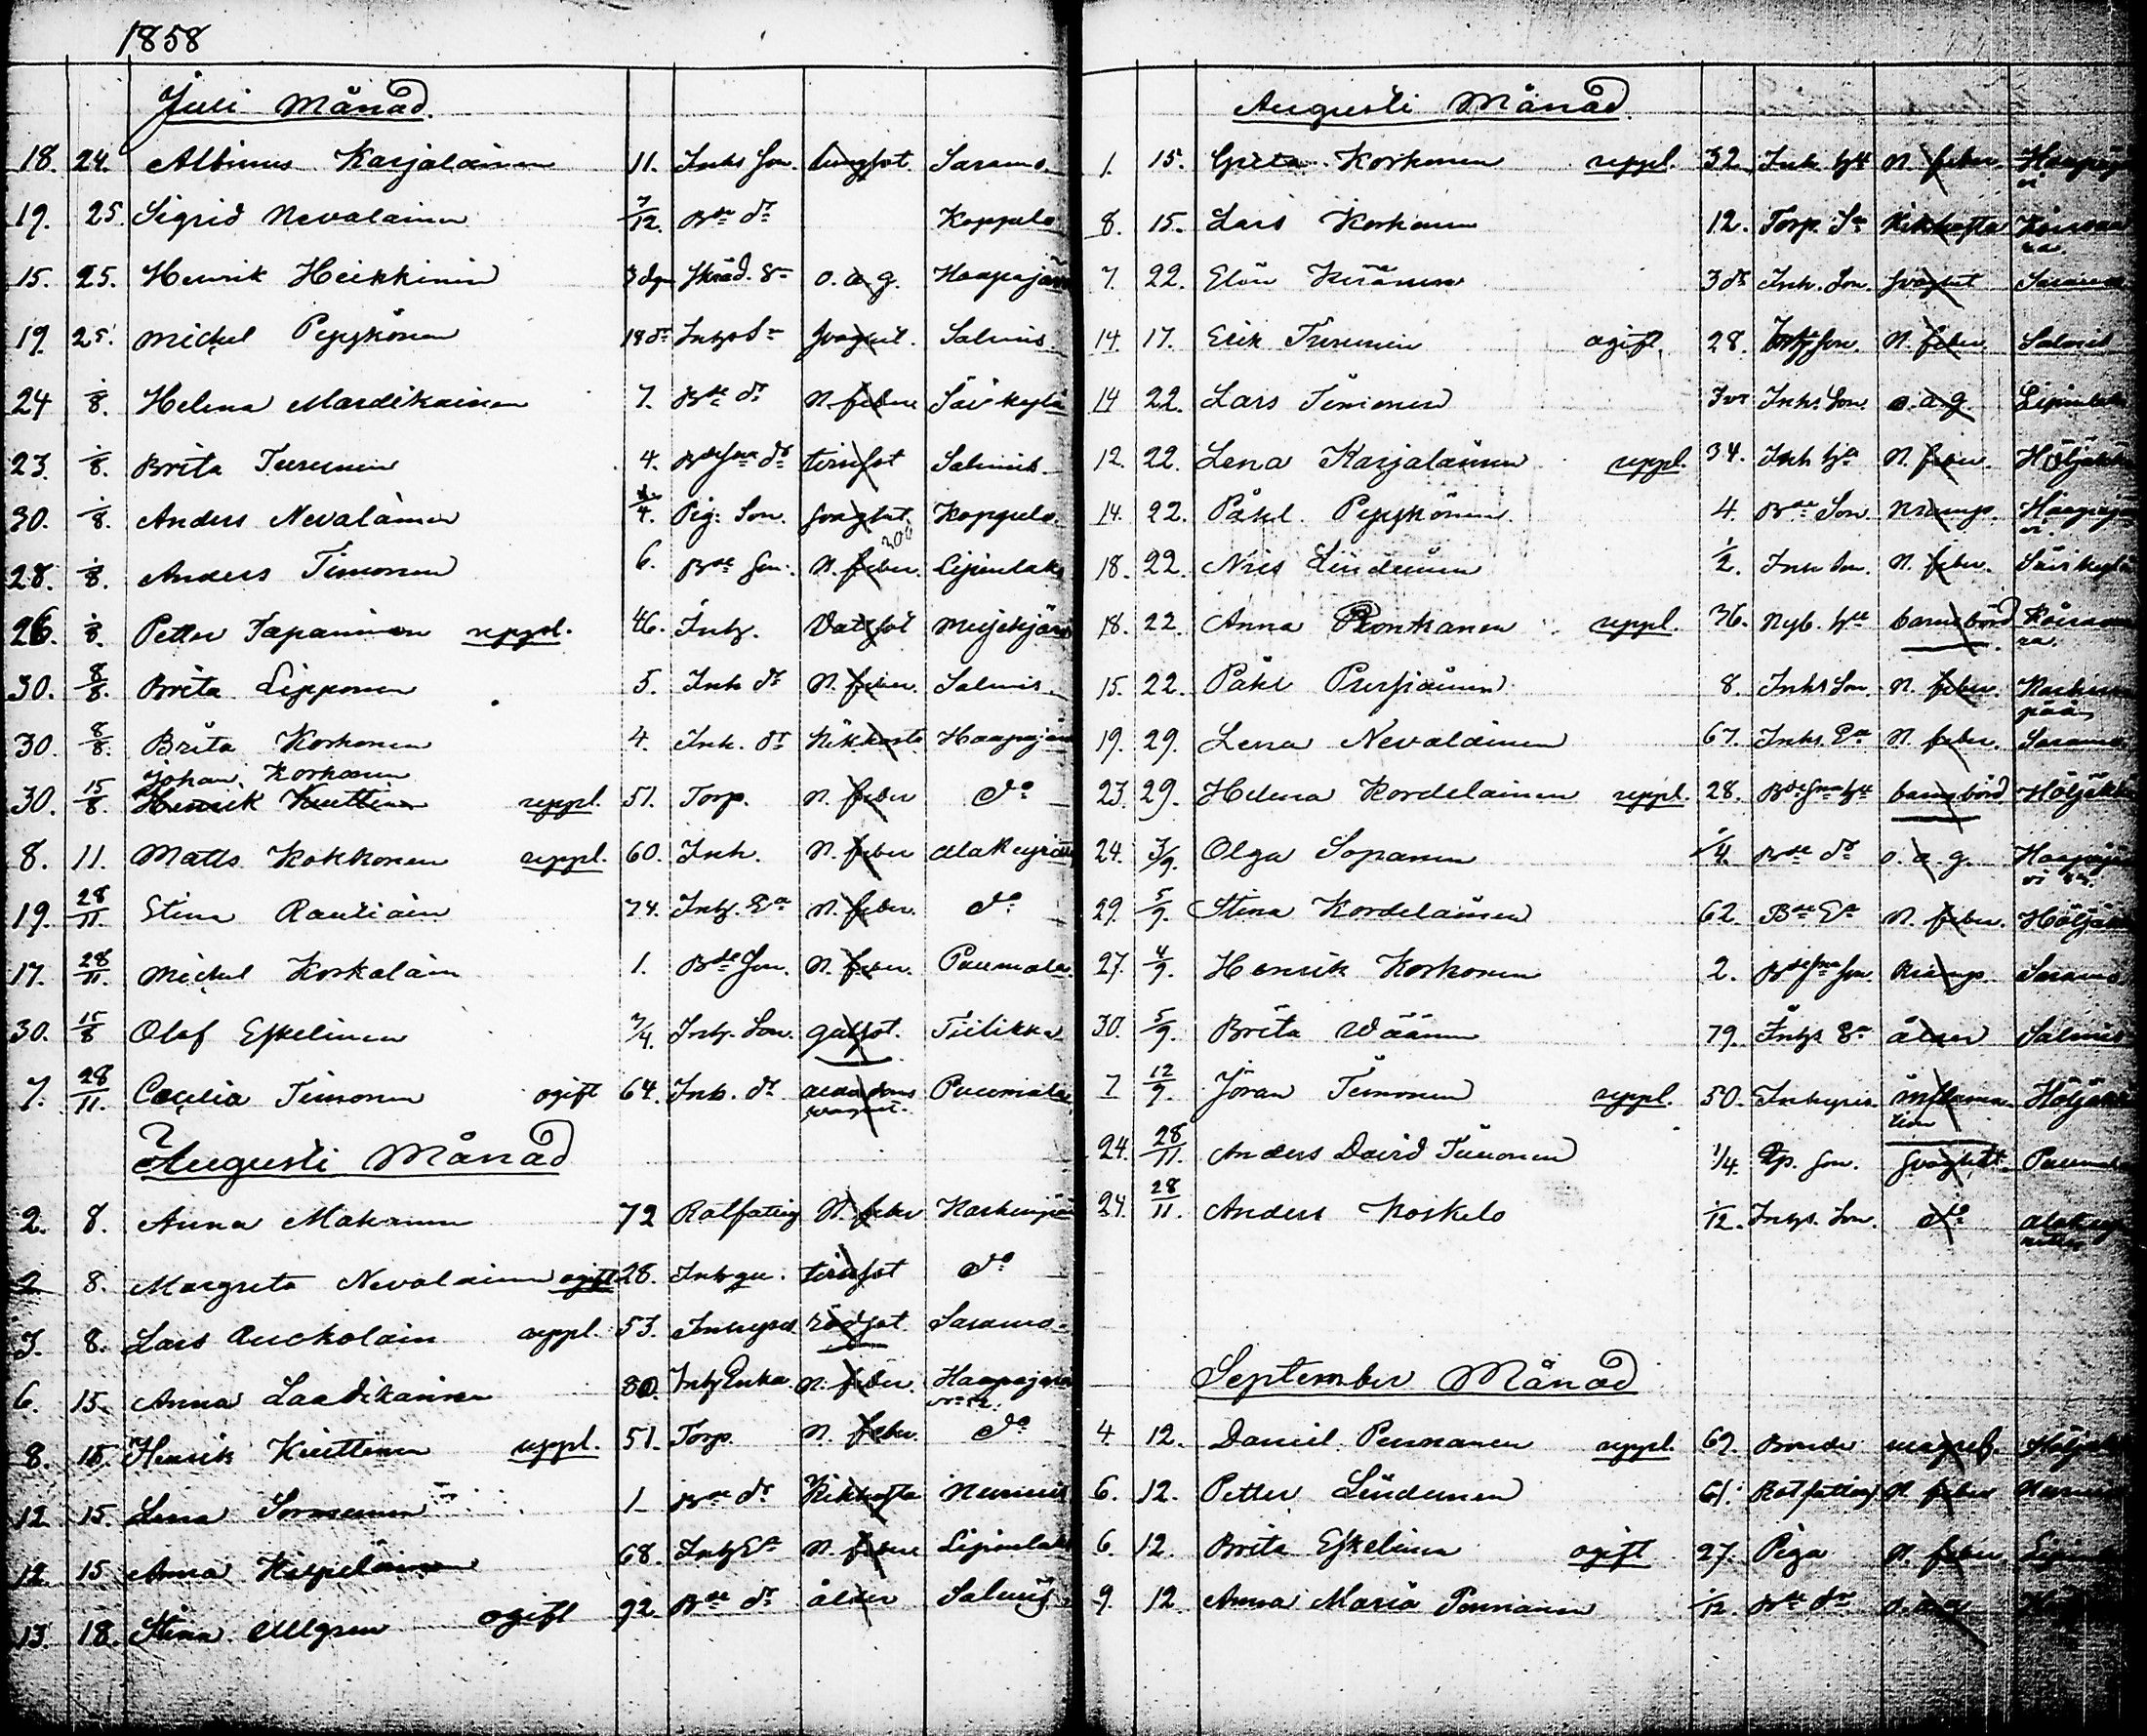 1858
Juli Månad.
18. 24. Albinus Karjalainen 11. Inhs Son. lungsot. Saramo.
19. 25. Sigrid Nevalainen 7/12. Bde dr Koppelo
15. 25. Henrik Heikkinen 3 dgr Skräd. Sn o. a. g. Haapajärvi
19. 25. Michel Pyykönen 18 dr Inhs Sn svaghet. Salmis.
24 1/8. Helena Mardikainen 7. Bde dr N. feber Säirkylä
23. 1/8. Brita Turunen 4. Bdesna dr tärsot Salmis
30. 1/8. Anders Nevalainen 1/4. Pig. Son. svaghet. Koppelo.
28. 1/8. Anders Timonen 6. Bde Son. N. feber. Lipinlaks
26. 1/8. Petter Tapaninen uppl. 46. Inh. Vatsot Mujejärvi
30. 8/8. Brita Lipponen 5. Inh dr N. feber. Salmis.
30. 8/8. Brita Korhonen 4. Inh. dr Kikhosta Haapajärvi
Johan Korhonen
30. 15/8 Henrik Kuittinen uppl. 51. Torp. N. feber do
8. 11. Matts Kokkonen uppl. 60. Inh. N. feber Alakeyritti
19. 28/11. Stina Rautiain 74. Inh. Ea N. feber. do
17. 28/11. Michel Koskelain 1. Bde Son. N. feber. Puumala.
30. 15/8 Olof Eskelinen 3/4. Inh. Son. gulsot. Tiilikka
7. 28/11. Cæcilia Timonen ogift 64. Inh. dr ålderdoms svaghet. Puumala
Augusti Månad
2. 8. Anna Makonen 72 Rotfattig N. feber Karhujärvi
2 8. Margreta Nevalainen ogift 28. Inhqu. tärsot do
3. 8. Lars Ruokolain uppl. 53. Inhyses rödsot Saramo.
6. 15. Anna Laadikainen 80. Inh Enka N. feber. Haapajärvi
8. 15. Henrik Kuittinen uppl. 51. Torp. N. feber. do
12 15. Lena Sormunen 1 Bde dr Kikhosta Nurmis
12. 15 Anna Keppeläinen 68. Inh Ea N. feber Lipinlaks
13. 18. Stina Ullgren ogift 92. Bde dr ålder Salmis
Augusti Månad.
1. 15. Greta Korhonen uppl. 32. Inh. hu N. feber. Haapajärvi
8. 15. Lars Korhonen 12. Torp. Sn Kikhosta Koirvaara.
7. 22. Elin Keränen 3 dr Inh. Son. svaghet Saramo
14. 17. Erik Turunen ogift. 28. Inhs Son. N. feber. Salmis
14 22. Lars Timonen 3 vr Inhs Son. o. a. g. Lipinlaks
12. 22. Lena Karjalainen uppl. 34. Inh hu N. feber. Höljäkkä
14. 22. Påhl Pyykönen. 4. Bde Son. kramp. Haapajärvi.
18. 22. Nils Lindunen 1/2. Inh Son. N. feber. Säirkylä
18. 22. Anna Ronkanen uppl. 36. Nyb. hu barnsbörd Koirvaara.
15. 22. Påhl Pursiainen 8. Inhs Son. N. feber.
19. 29. Lena Nevalainen 67. Inhs. Ea N. feber. Saramo.
23. 29. Helena Kordelainen uppl. 28. Bdesna hu barnsbörd Höljäkkä
24. 3/9. Olga Sopanen 1/4. Bde dr o. a. g. Haapajärvi
29. 5/9. Stina Kordelainen 62. Bde Ea N. feber. Höljäkkä
27. 4/9. Henrik Korhonen 2. Bdesna Son kramp. Saramo.
30. 5/9. Brita Väänen 79. Inhs Ea ålder Salmis
7 12/9. Jöran Timonen uppl. 50. Inhyses inflammation Höljäkkä
24. 28/11. Anders David Timonen 1/4. Tp. Son. svaghet. Puumala
24. 28/11. Anders Koskelo 1/12. Inhs. Son. do
September Månad
4. 12. Daniel Pennanen uppl. 69. Bonde magref. Höljäkkä
6. 12. Petter Lindunen 61. Rotfattig N. feber Nurmis
6. 12. Brita Eskelinen ogift 27. Piga N. feber. Lipinlaks
9. 12. Anna Maria Pennanen 1/12. Bde dr o. a. g.